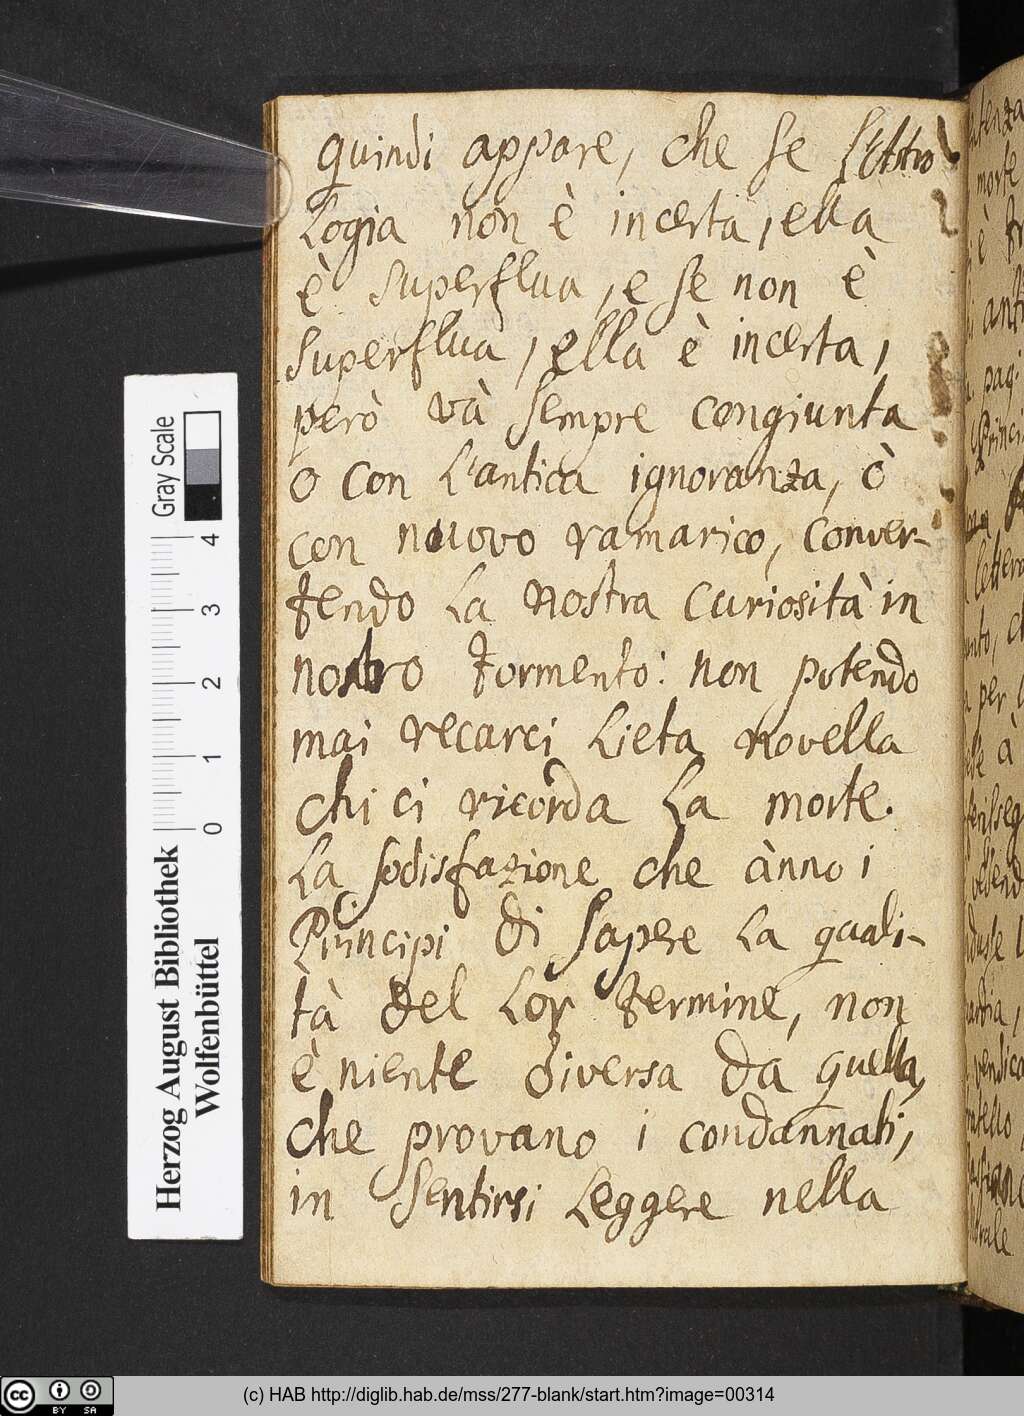 quindi appare, che se l'Astro
logia non è incerta, ella
è superflua, e se non è
superflua, ella è incerta,
però và sempre congiunta
o con l'antica ignoranza, ò
con nuovo ramarico, conver-
tendo la nostra curiosità in
nostro tormento: non potendo
mai recarci lieta novella
chi ci ricorda la morte.
La sodisfazione che ànno i
Principi di sapere la quali-
tà del lor termine, non
è niente diversa da quella,
che provano i condannati,
in sentirsi leggere nella
Gray Scale
4
3
2
1
0
Herzog August Bibliothek
Wolfenbüttel
morte
è
pag.
Princi
per
à
cc BY SA
(c) HAB http://diglib.hab.de/mss/277-blank/start.htm?image=00314